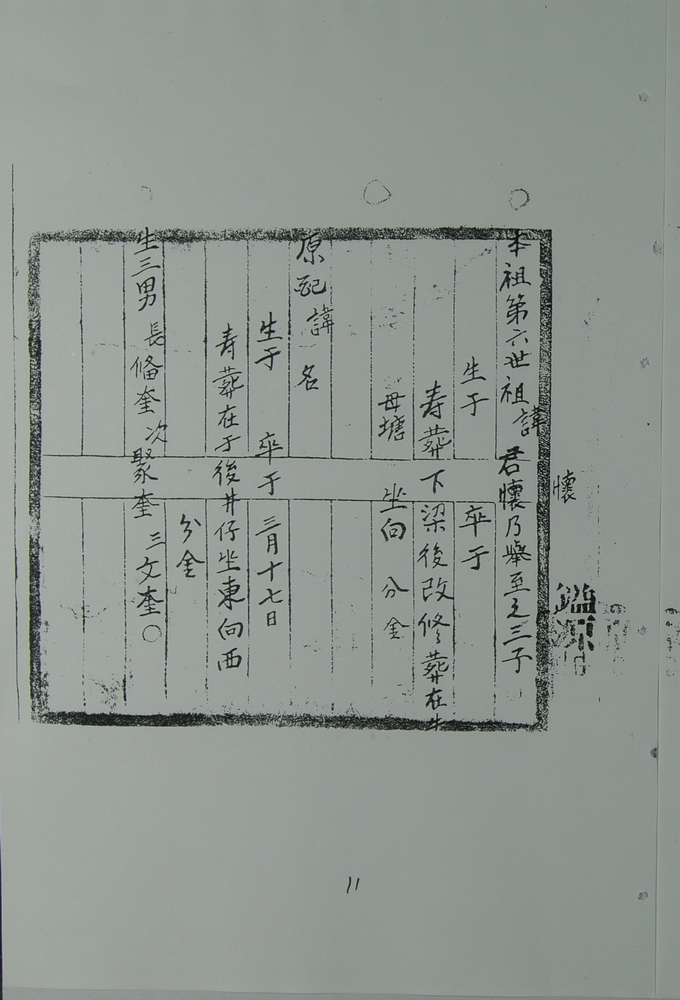 懷
鎰源
本祖第六世祖諱君懷乃舉至之三子
生于 卒于
寿葬下梁後改修葬在牛
母塘 坐向 分金
原配諱名
生于 卒于三月十七日
寿葬在于後井仔坐東向西
分金
生三男 長脩奎 次聚奎 三文奎〇
11